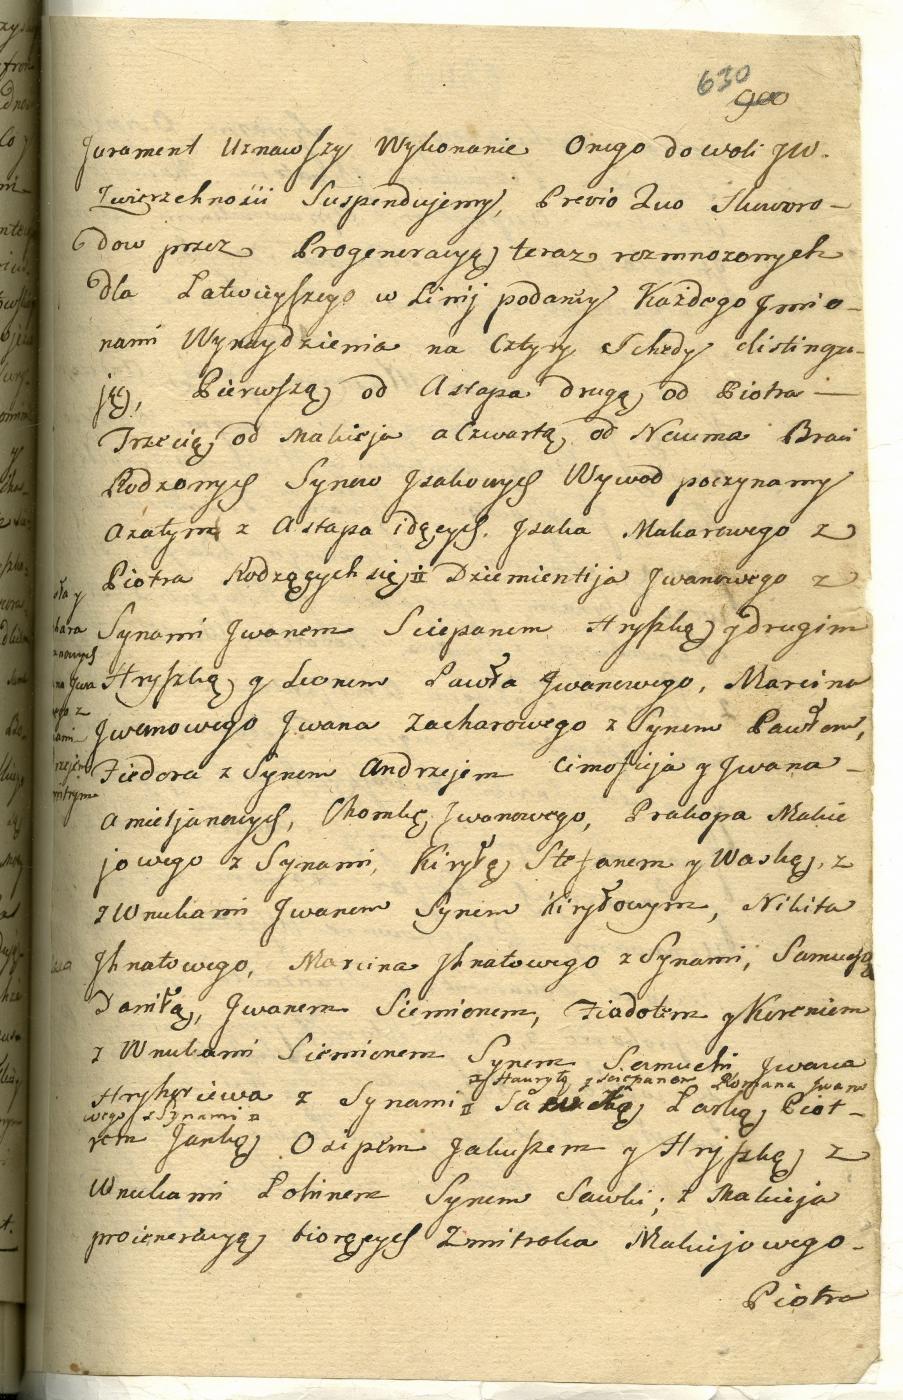 630
900
Jurament Uznawszy Wykonanie Onego do woli JW.
Zwierzchnośii Suspendujemy, Previo Quo Sloworo-
dow przez Progeneracyą teraz rozmnożonych
dla Łatwieyszego w Linij podamy Każdego Jmio-
nami Wynaydzienia na Cztyry Schedy distingu-
ją, Pierwszą od Astapa drugą od Piotra —
Trzecią od Makieja a Czwartą od Nauma Braci
Rodzonych Synow Jzakowych Wywod poczynamy
azatym z Astapa idących. Jzaka Makarowego z
Piotra Rodzących się Dziemientija Jwanowego z
Synami Jwanem Sciepanem Hryszką y drugim
Hryszką y Leonem Pawła Jwanowego, Marcina
Jwanowego Jwana Zacharowego z Synem Pawłem,
Fiedora z Synem Andrzejem Cimofieja y Jwana -
Amieljanowych, Chomkę Jwanowego, Prakopa Makie
jowego z Synami, Kiryłą Stefanem y Waśką, z
z Wnukami Jwanem Synem Kiryłowym, Nikita
Jhnatowego, Marcina Jhnatowego z Synami, Samueją
Daniłą, Jwanem Siemionem, Fiadotem y Koreniem
z Wnukami Siemionem Synem Samuela Jwana
z Hauryłą y Sciepanem Romana Jwano
Hryhoriewa z Synami Sawką Łarką Piot-
wego z Synami
rem Janką Osipem Jakuszem y Hryszką z
Wnukami Łohinem Synem Sawki; z Makieja
proieneracyą biorących Zmitroka Makiejowego -
Piotra